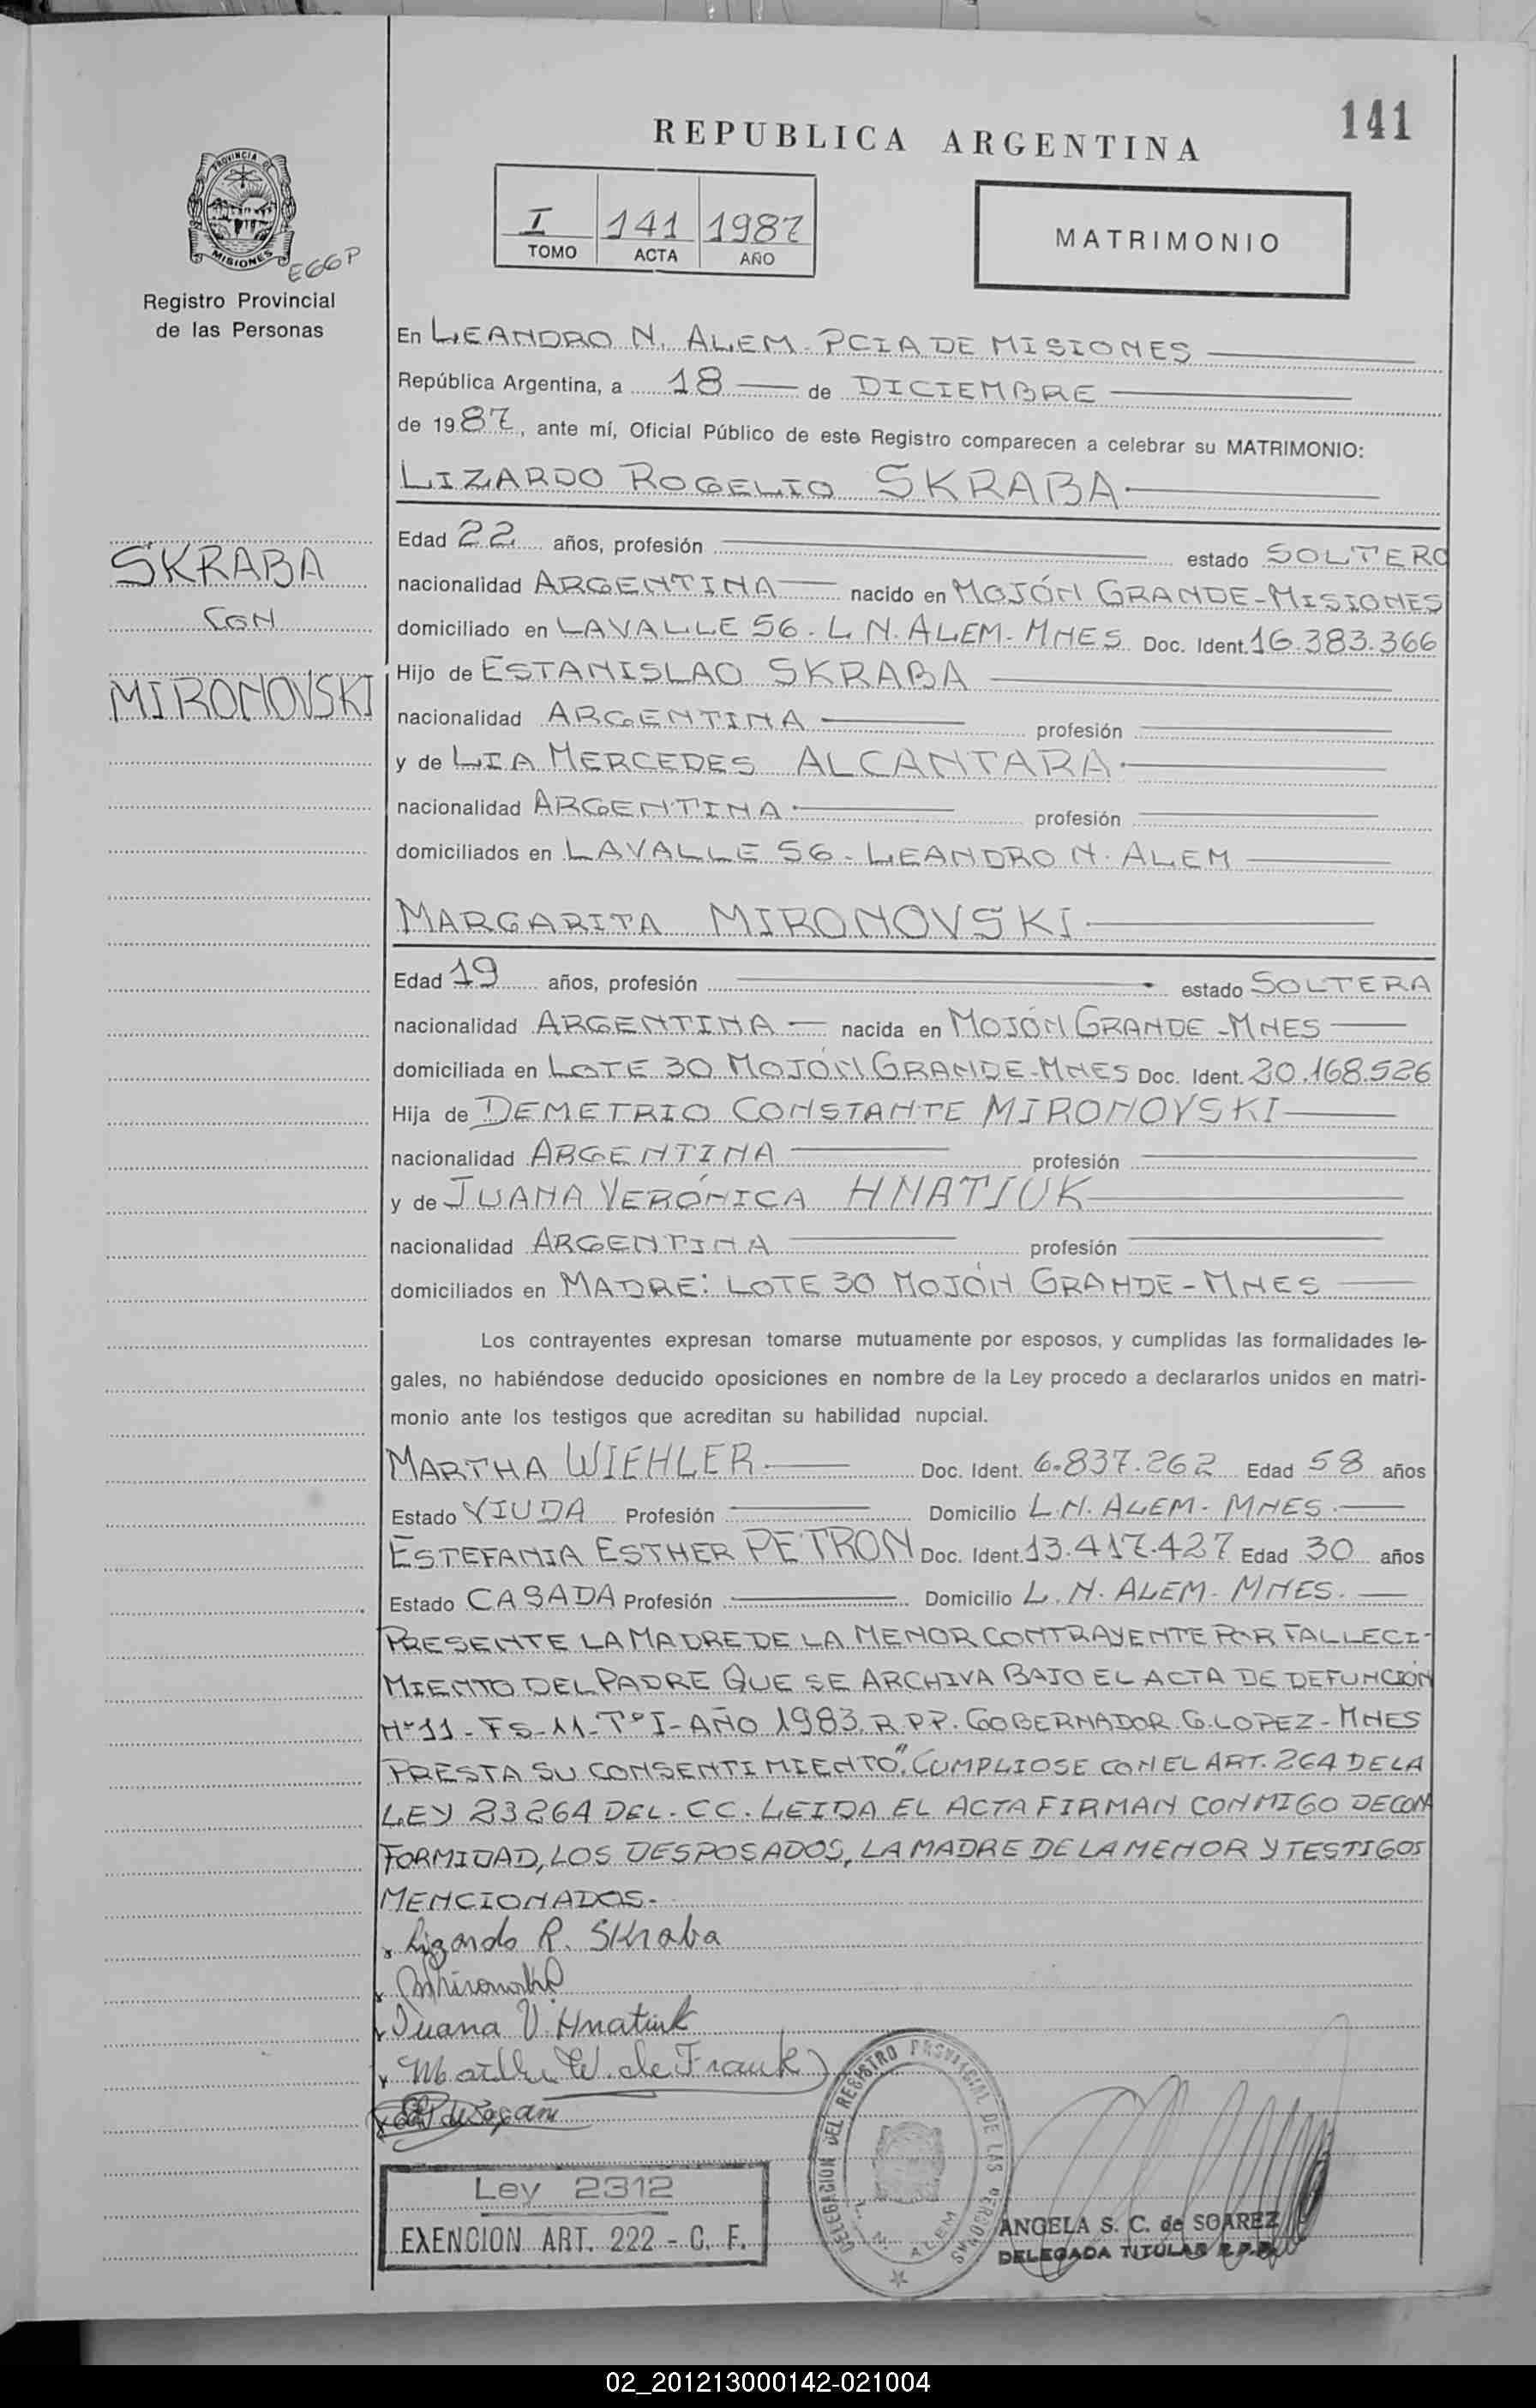 141
REPUBLICA ARGENTINA
PROVINCIA DE
MISIONES
Registro Provincial
de las Personas
I 141 1987
TOMO ACTA AÑO
MATRIMONIO
En LEANDRO N. ALEM - PCIA DE MISIONES
República Argentina, a 18 de DICIEMBRE
de 1987, ante mí, Oficial Público de este Registro comparecen a celebrar su MATRIMONIO:
LIZARDO ROGELIO SKRABA
SKRABA
CON
MIRONOVSKI
Edad 22 años, profesión estado SOLTERO
nacionalidad ARGENTINA nacido en MOJÓN GRANDE-MISIONES
domiciliado en LAVALLE 56 - L. N. ALEM - MNES Doc. Ident. 16.383.366
Hijo de ESTANISLAO SKRABA
nacionalidad ARGENTINA profesión
y de LIA MERCEDES ALCANTARA
nacionalidad ARGENTINA profesión
domiciliados en LAVALLE 56 - LEANDRO N. ALEM
MARGARITA MIRONOVSKI
Edad 19 años, profesión estado SOLTERA
nacionalidad ARGENTINA nacida en MOJÓN GRANDE - MNES
domiciliada en LOTE 30 MOJÓN GRANDE - MNES Doc. Ident. 20.168.526
Hija de DEMETRIO CONSTANTE MIRONOVSKI
nacionalidad ARGENTINA profesión
y de JUANA VERÓNICA HNATIUK
nacionalidad ARGENTINA profesión
domiciliados en MADRE: LOTE 30 MOJÓN GRANDE - MNES
Los contrayentes expresan tomarse mutuamente por esposos, y cumplidas las formalidades le-
gales, no habiéndose deducido oposiciones en nombre de la Ley procedo a declararlos unidos en matri-
monio ante los testigos que acreditan su habilidad nupcial.
MARTHA WIEHLER Doc. Ident. 6.837.262 Edad 58 años
Estado VIUDA Profesión Domicilio L.N. ALEM - MNES.
ESTEFANIA ESTHER PETRON Doc. Ident. 13.417.427 Edad 30 años
Estado CASADA Profesión Domicilio L. N. ALEM - MNES.
PRESENTE LA MADRE DE LA MENOR CONTRAYENTE POR FALLECI-
MIENTO DEL PADRE QUE SE ARCHIVA BAJO EL ACTA DE DEFUNCIÓN
Nº 11 - Fs - 11 - Tº I - AÑO 1983. R.P.P. GOBERNADOR G. LOPEZ - MNES
PRESTA SU CONSENTIMIENTO". CUMPLIOSE CON EL ART. 264 DE LA
LEY 23264 DEL. CC. LEIDA EL ACTA FIRMAN CONMIGO DE CON
FORMIDAD, LOS DESPOSADOS, LA MADRE DE LA MENOR Y TESTIGOS
MENCIONADOS.-
Lizardo R. Skraba
Juana V. Hnatiuk
W. de Frank
DELEGACION DEL REGISTRO PROVINCIAL DE LAS PERSONAS
L. N. ALEM
Ley 2312
EXENCION ART. 222 - C. F.
ANGELA S. C. de SOAREZ
DELEGADA TITULAR R.P.P.
02_201213000142-021004